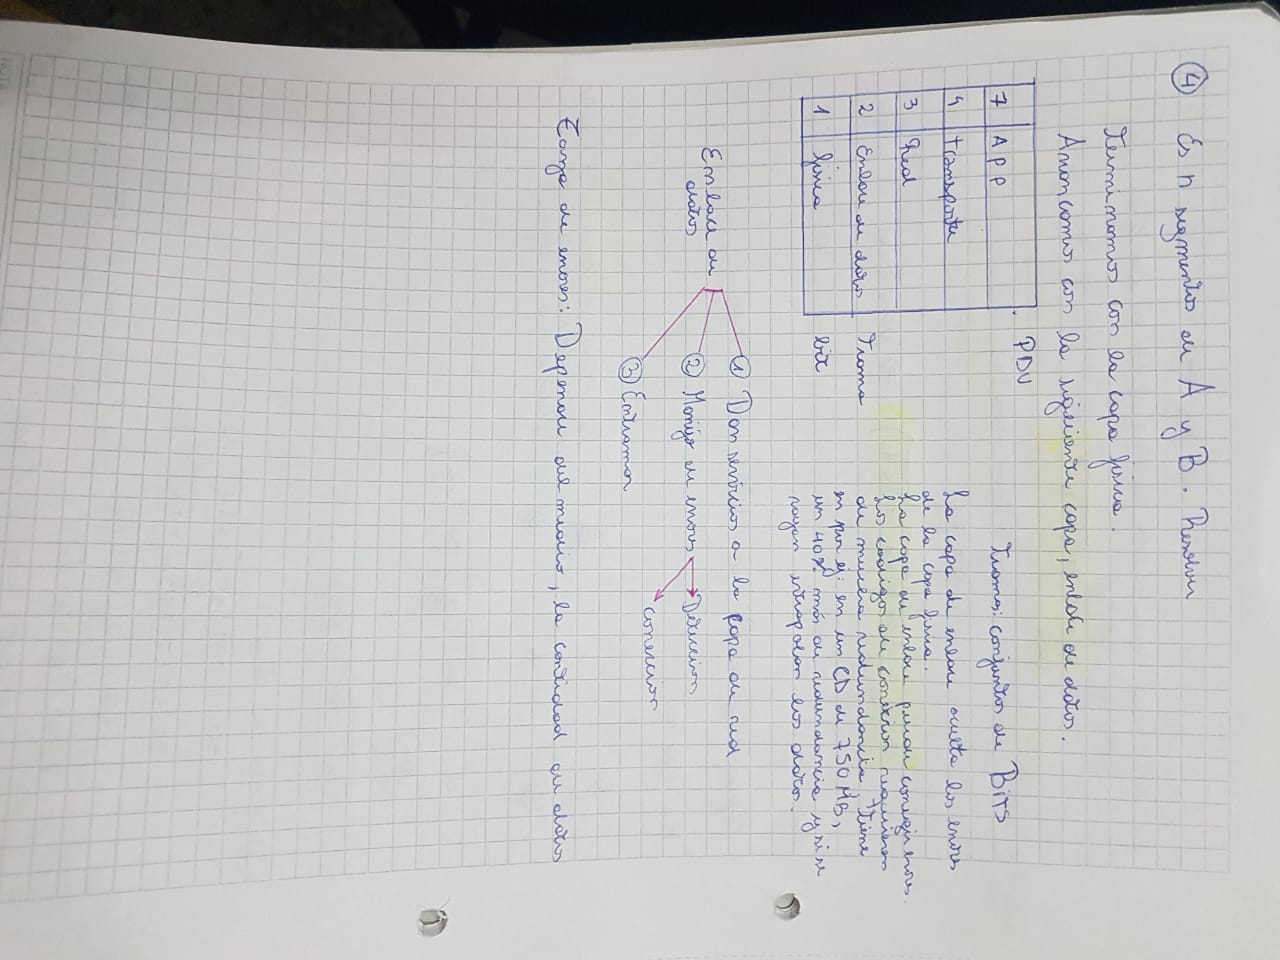 4 Es n segmentos de A y B. Resolver
Terminamos con la capa física.
Arrancamos con la siguiente capa, enlace de datos.
PDU
7 APP
4 transporte
3 Red
2 Enlace de datos Trama
1 física bit
Trama: conjuntos de BITS
La capa de enlace oculta los errores
de la capa física.
La capa de enlace puede corregir errores.
Los códigos de corrección requieren
de mucha redundancia, tiene
en por ej: en un CD de 750 MB,
un 40% más de redundancia y si se
rayan extrapolan los datos.
Enlace de
datos
1 Dan servicios a la capa de red
2 Manejo de errores Detección
corrección
3 Entramar
de errores: Depende del medio, la cantidad de datos